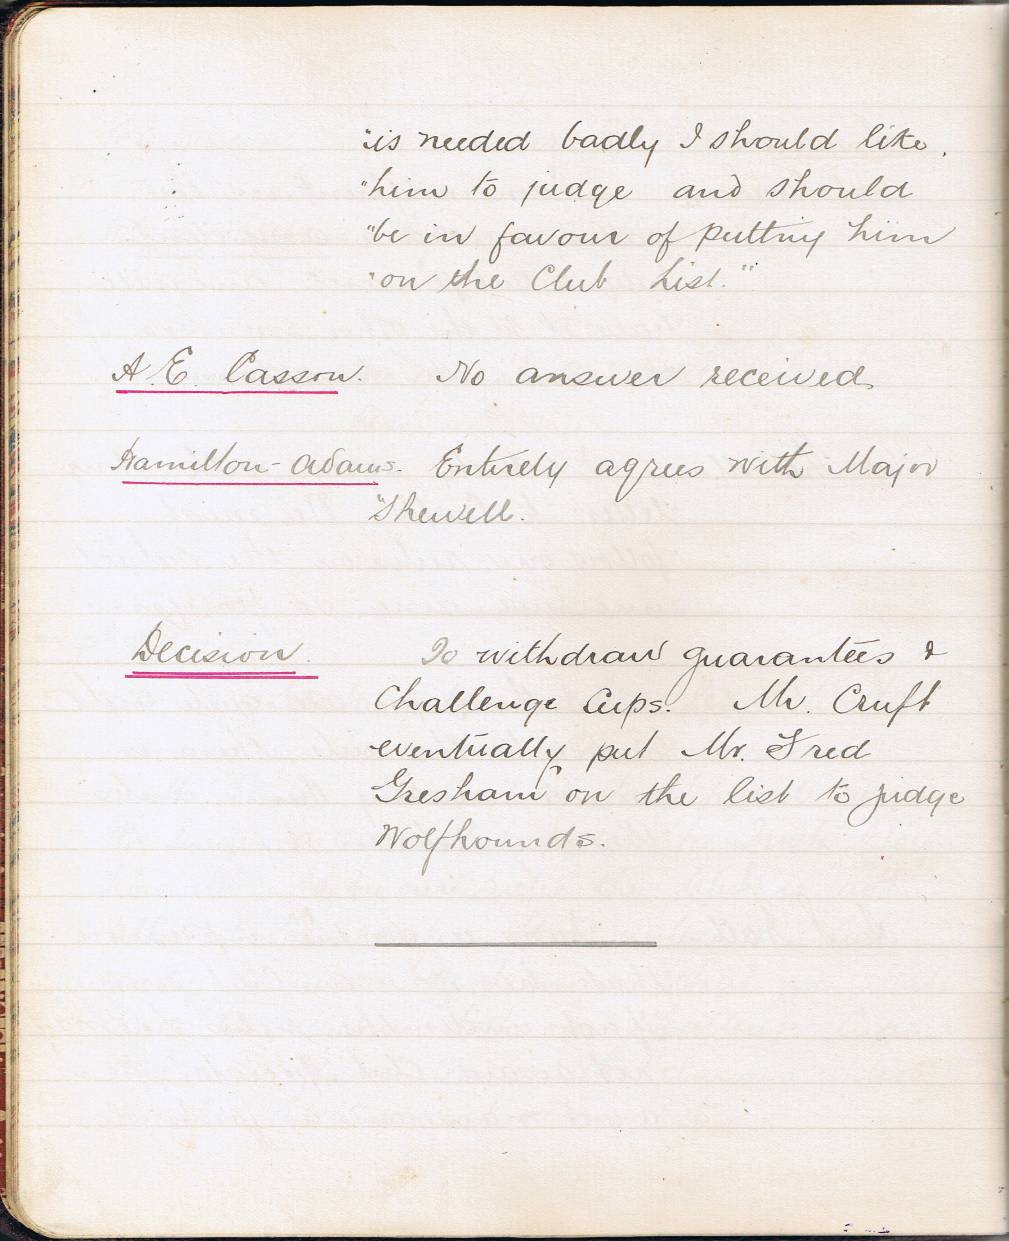 "is needed badly I should like.
"him to judge and should
"be in favour of putting him
"on the Club List."
A. E. Casson. No answer received.
Hamilton-Adams. Entirely agrees with Major
"Shewell.
Decision. To withdraw guarantees &
Challenge Cups. Mr. Cruft
eventually put Mr. Fred
Gresham on the list to judge
Wolfhounds.